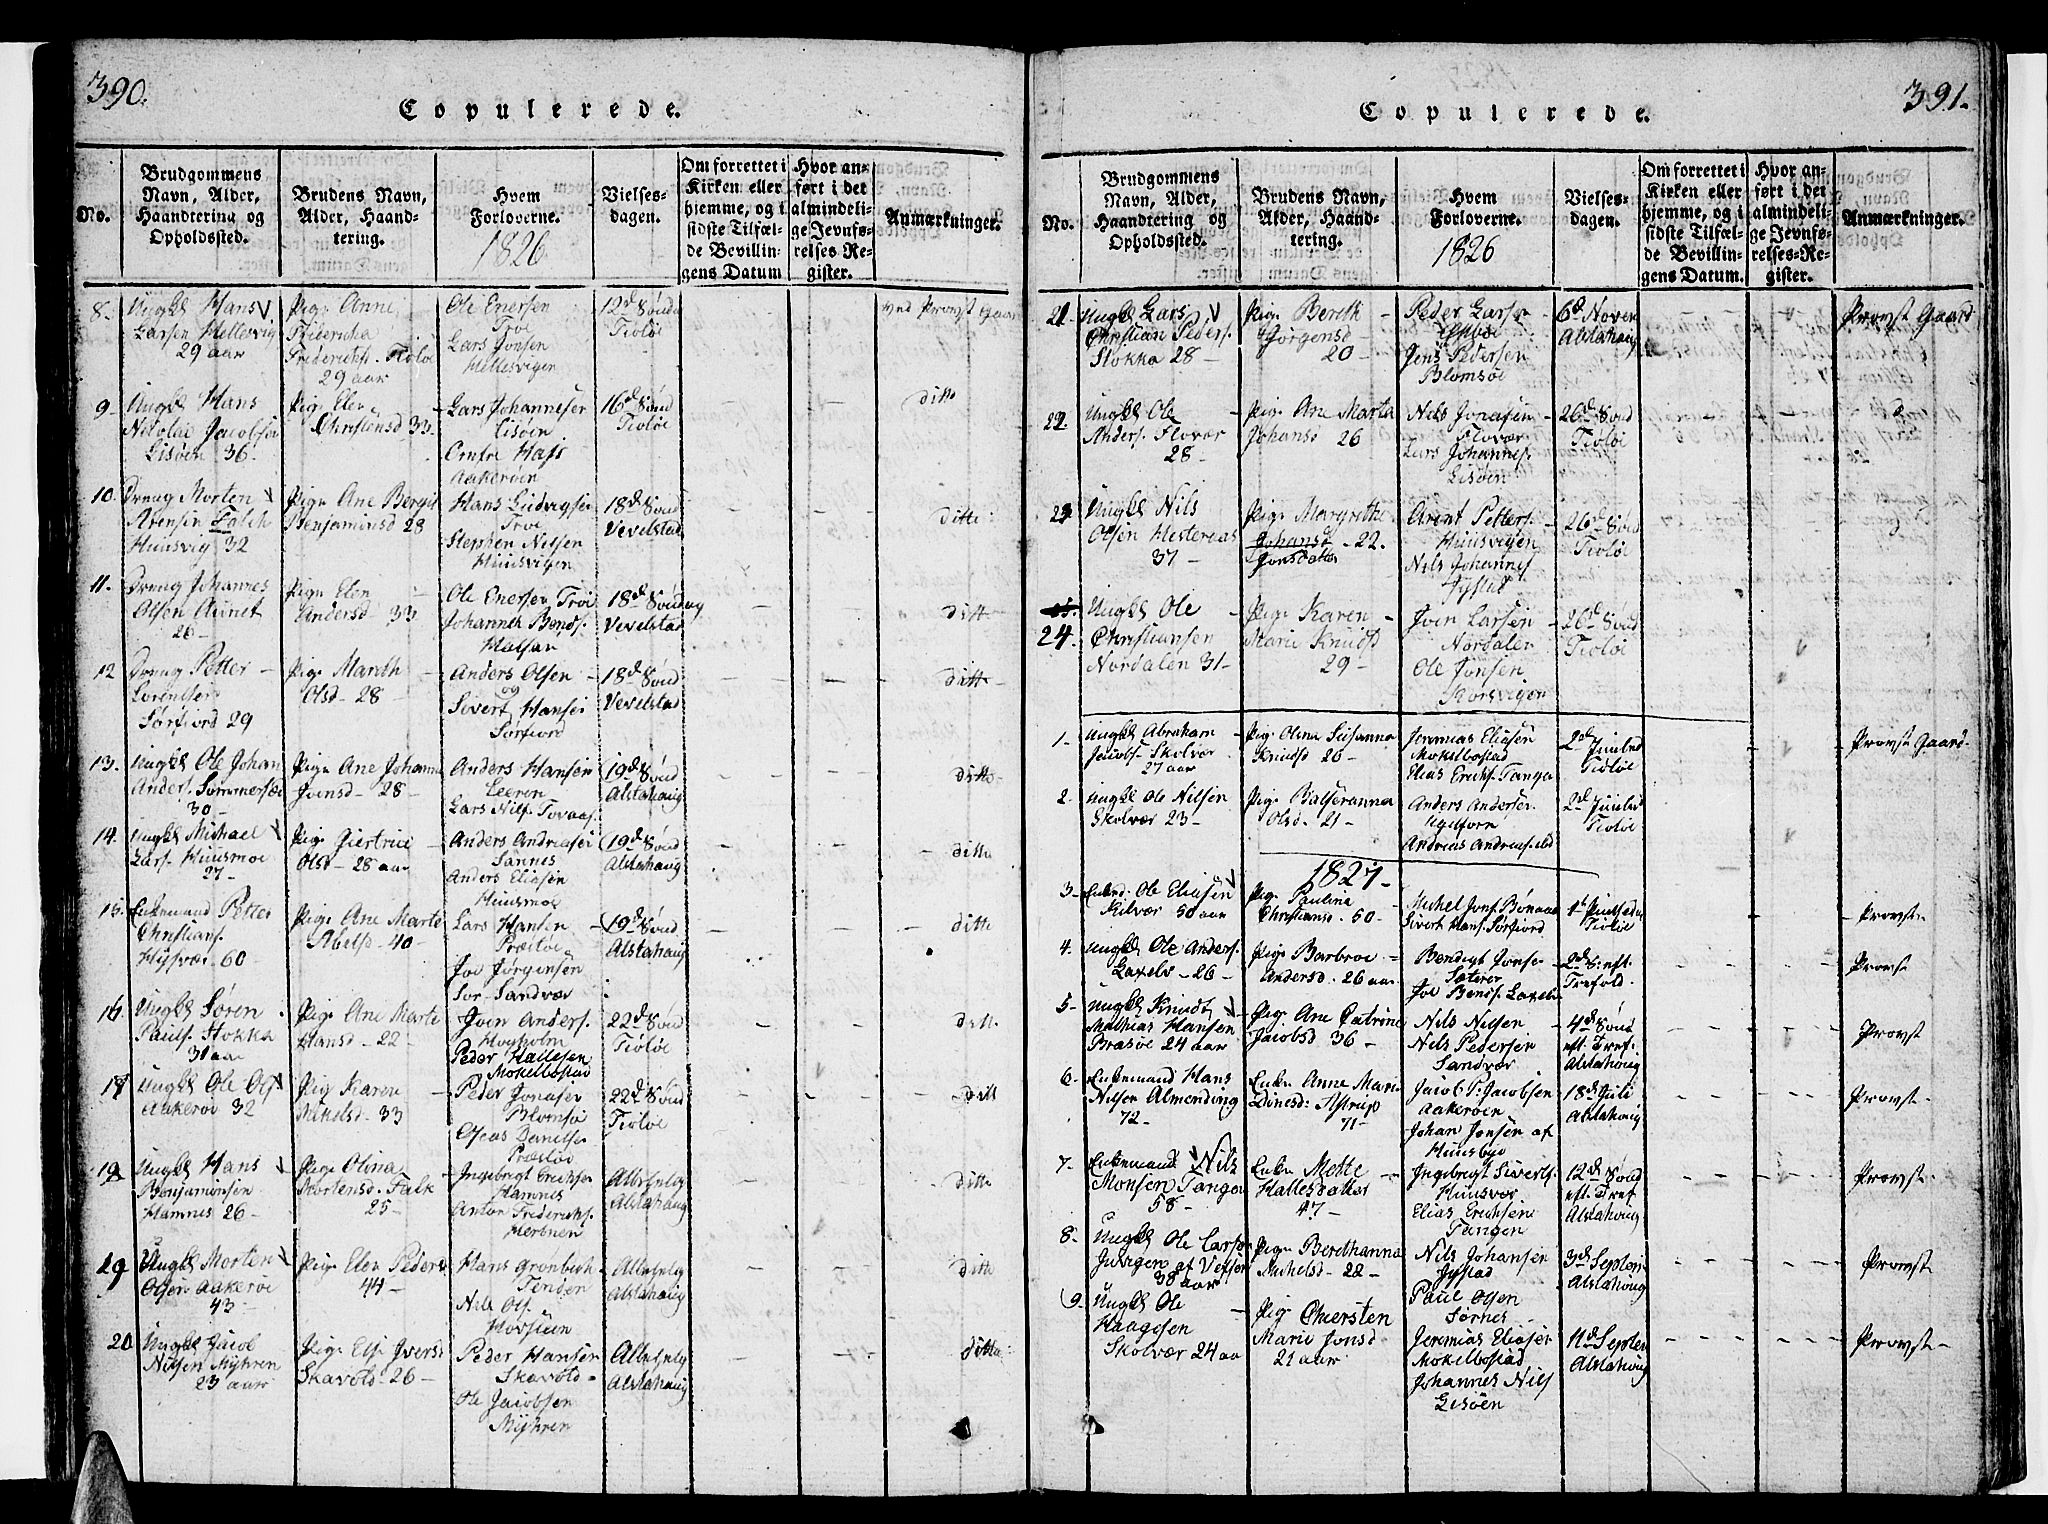 390.
Copulerede.
No.
Brudgommens
Navn, Alder,
Haandtering og
Opholdssted.
Brudens Navn,
Alder, Haand-
tering.
Hvem
Forloverne.
1826
Vielses-
dagen.
Om forrettet i
Kirken eller
hjemme, og i
sidste Tilfæl-
de Bevillin-
gens Datum
Hvor an-
ført i det
almindeli-
ge Jevnfø-
relses-Re-
gister.
Anmærkninger.
8.
Ungkl Hans
Larsen Hellesvig
29 aar
Pige Anne
Friderica
Frederiks. Tiøtøe
29 aar
Ole Enersen
Troe
Lars Jonsen
Hellesvigen
12 d Sønd
Tiøtøe
ved Provst Gaar
9
Ungkl Hans
Nicolai Jacobsen
Lisøen 36
Pige Elen
Christensd 33
Lars Johannesen
Lisøen
Hass
Aakerøen
16 d Sønd
Tiøtøe
ditto
10.
Dreng Morten
Arensen Falch
Huusvig 32
Pige Ane Bergit
Benjaminsd 28
Hans Ludvigsen
Troe
Stephen Nilsen
Huusvigen
18 d Sønd
Vevelstad
ditto
11.
Dreng Johannes
Olsen Aunet
26
Pige Elen
Andersd 33
Ole Enersen Troe
Johannes Bends.
18 d Søndag
Vevelstad
ditto
12
Dreng Petter
Lorentsen
Sørfiord 29
Pige Mareth
Olsd 28
Anders Olsen
og
Sivert Hansen
Sørfiord
18 d Sønd
Vevelstad
ditto
13.
Ungkl Ole Johan
Anders. Sommersøe
30
Pige Ane Johanna
Joensd 28
Anders Hansen
Leeren
Lars Nils. Tovaas
19 d Sønd
Alstahaug
ditto
14.
Ungkl Michael
Lars. Huusmoe
27
Pige Giertrue
Olsd 28 aar
Anders Andreasen
Sannes
Anders Eliasen
Huusmoe
19 d Sønd
Alstahaug
ditto
15.
Enkemand Petter
Christians.
Hysvær 60
Pige Ane Marte
Abelsd 40
Lars Hansen
Præstøe
Joe Jørgensen
Sør-Sandvær
19 d Sønd
Alstahaug
ditto
16.
Ungkl Søren
Pauls. Stokka
31 aar
Pige Ane Marte
Hansd 22
Joen Anders.
Høyholm
Peder Hallesen
Mokelbostad
22 d Sønd
Tiøtøe
ditto
17
Ungkl Ole Ols
Aakerøe 32
Pig Karen
Mikelsd 33
Peder Jonasen
Blomsøe
Danielsen
Præstøe
22 d Sønd
Tiøtøe
ditt
Ungkl Hans
Benjaminsen
Hamnes 26
Pige Olina
Mortensd Falk
25
Ingebrigt Erichsen
Hamnes
Anton Frederichs.
Alstahaug
ditto
19
Ungkl Morten
Olsen Aakerøe
43
Pige Elen Peders
44
Hans Grønbech
Tenden
Nils Ols.
Alstahaug
ditto
20
Ungkl Jacob
Nilsen Myhren
23 aar
Pige Else Iversd
Skavold 26
Peder Hansen
Skavold
Ole Jacobsen
Myhren
Alstahaug
ditto
391.
Copulerede.
No.
Brudgommens
Navn, Alder,
Haandtering og
Opholdssted.
Brudens Navn,
Alder, Haand-
tering.
Hvem
Forloverne.
1826
Vielses-
dagen.
Om forrettet i
Kirken eller
hjemme, og i
sidste Tilfæl-
de Bevillin-
gens Datum.
Hvor an-
ført i det
almindeli-
ge Jevnfø-
relses-Re-
gister.
Anmærkninger.
21
Ungkl Lars
Christian Peders.
Stokka 28
Pige Bereth
Jørgensd
20
Peder Larsen
Jens Pedersen
Blomsøe
6 d Noven
Alstahaug
Provst Gaard
22.
Ungkl Ole
Anders. Flovær
28
Pige Ane Marta
Johansd 26
Nils Jonasen
Flovær
Lars Johannes.
Lisøen
26 d Sønd
Tiøtøe
d
23
Ungkl Nils
Olsen Hesteraas
37
Pige Margrethe
Johansd 22.
Jonsdatter
Arent Petters.
Huusvigen
Nils Johannes
Jystad
26 d Sønd
Tiøtøe
d
24.
Ungkl Ole
Christiansen
Nordalen 31
Pige Karen
Marie Knuds
29
Joen Larsen
Nordalen
Ole Jonsen
Korsvigen
26 d Sønd
Tiøtøe
1.
Ungkl Abraham
Jacobs. Skolvær
27 aar
Pige Olena Susanna
Knudsd 26
Jeremias Eliasen
Mokelbostad
Elias Erichs. Tangen
2 d Juuled
Tiøtøe
Provst Gaard
2.
Ungkl Ole Nilsen
Skolvær 23
Pige Balseranna
Olsd 21
Anders Andersen
Andreas Andreas
2 d Juuled
Tiøtøe
1827
3
Enkd: Ole Eliasen
Kilvær 50 aar
Pige Paulina
Christiansd 50
Michel Jons. Bønaas
Sivert Hans. Sørfiord
Tiøtøe
Provst
4.
Ungkl Ole Anders.
Laxelv 26
Pige Barbroe
Andersd 26 aar
Bendigt Jonsen
Joe Bends. Laxelv
2 d S: eft
Trefold.
Provst
5
Ungkl Knudt
Mathias Hansen
Brasøe 24 aar
Pige Ane Catrine
Jacobsd 36
Nils Nilsen
Nils Pedersen
Sandvær
4 d Sønd
eft Tref.
Alstahaug
Provst
6.
Enkemand Hans
Nilsen Almending
72
Enke Anne Maria
Dinesd:
71
Jacob P. Jacobsen
Aakerøen
Johan Jonsen af
Huusbye
18 d Juli
Alstahaug
Provst
7.
Enkemand Nils
Monsen Tangen
58
Enke Mette
Hallesdatter
47
Ingebrigt Siverts.
Huusvær
Elias Erichsen
Tangen
12 d Sønd
eft Tref
Alstahaug
Provst
8.
Ungkl Ole Larsen
Juvigen af Vefsen
38 aar
Pige Berethanna
Michelsd 22
Nils Johansen
Jystad
Paul Olsen
Sørnes
3 d Septen
Alstahaug
Provst
9.
Ungkl Ole
Haagesen
Skolvær 24 aa
Pige Chiersten
Marie Jonsd
21 aar
Jeremias Eliasen
Mokelbostad
Johannes Nils
Lisøen
11 d Septen
Alstahaug
Provst